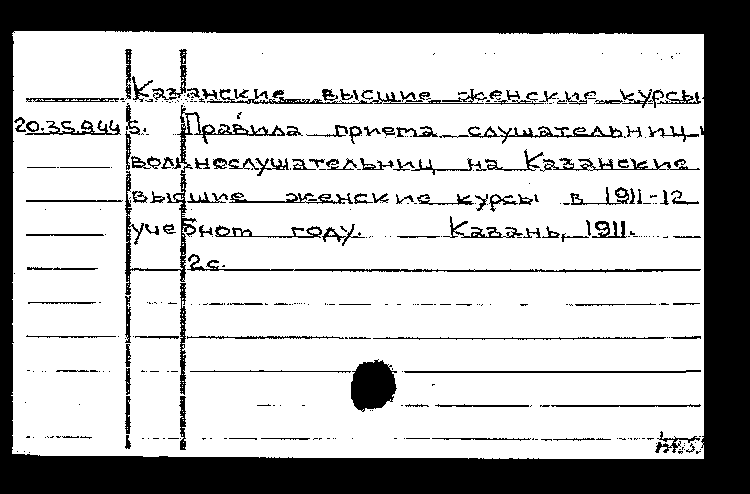 Казанские высшие женские курсы
20.35.944 б. Правила приема слушательниц и
вольнослушательниц на Казанские
высшие женские курсы в 1911-12
учебном году. Казань, 1911.
2 с.